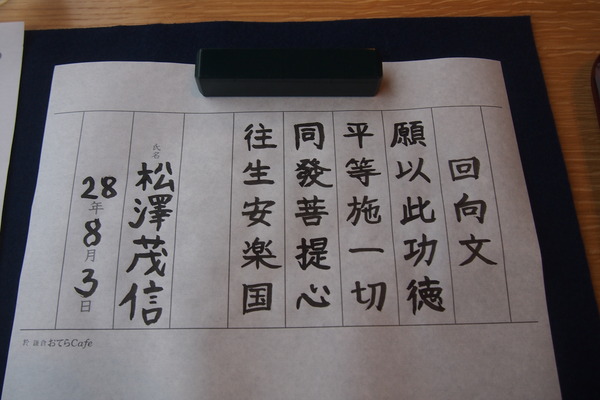 回向文
願以此功徳
平等施一切
同發菩提心
往生安楽国
氏名 松澤茂信
28年8月3日
於・鎌倉おてらCafe